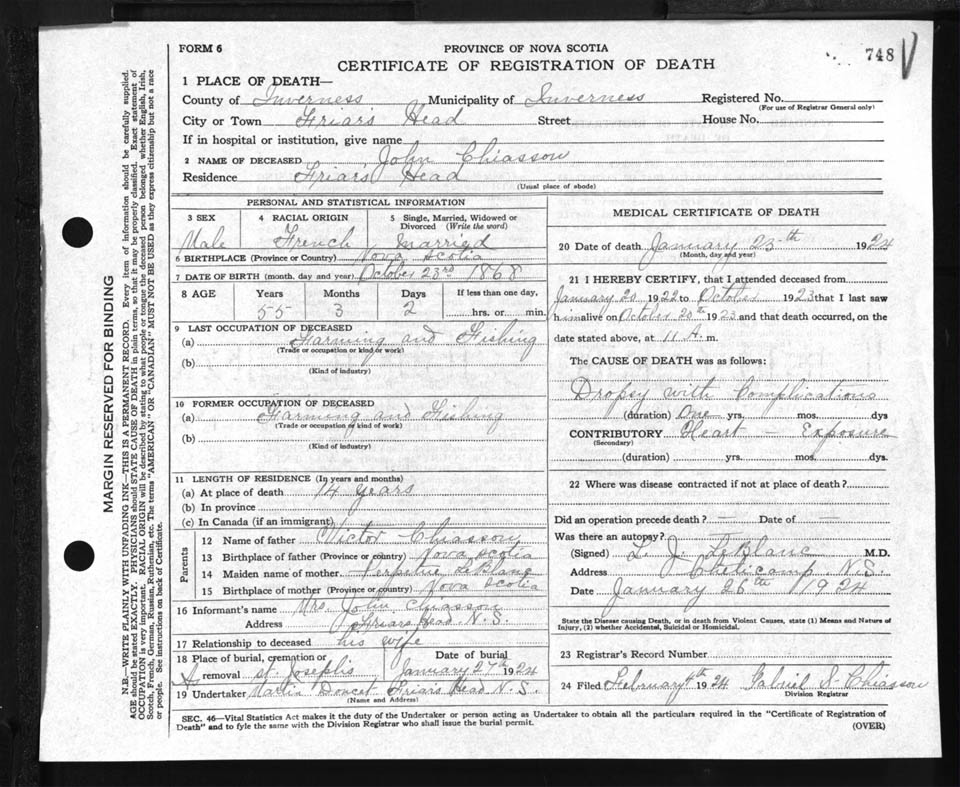 FORM 6
PROVINCE OF NOVA SCOTIA
748 V
CERTIFICATE OF REGISTRATION OF DEATH
1 PLACE OF DEATH—
County of Inverness Municipality of Inverness Registered No.
(For use of Registrar General only)
City or Town Friar's Head Street House No.
If in hospital or institution, give name
2 NAME OF DECEASED John Chiasson
Residence Friar's Head
(Usual place of abode)
PERSONAL AND STATISTICAL INFORMATION
3 SEX 4 RACIAL ORIGIN 5 Single, Married, Widowed or
Divorced (Write the word)
Male French Married
6 BIRTHPLACE (Province or Country) Nova Scotia
7 DATE OF BIRTH (month, day and year) October 23rd 1868
8 AGE Years Months Days If less than one day,
55 3 2 hrs. or min.
9 LAST OCCUPATION OF DECEASED
(a) Farming and Fishing
(Trade or occupation or kind of work)
(b)
(Kind of industry)
10 FORMER OCCUPATION OF DECEASED
(a) Farming and Fishing
(Trade or occupation or kind of work)
(b)
(Kind of industry)
11 LENGTH OF RESIDENCE (In years and months)
(a) At place of death 14 years
(b) In province
(c) In Canada (if an immigrant)
Parents
12 Name of father Victor Chiasson
13 Birthplace of father (Province or country) Nova Scotia
14 Maiden name of mother Perpetue LeBlanc
15 Birthplace of mother (Province or country) Nova Scotia
16 Informant's name Mrs. John Chiasson
Address Friars Head N.S.
17 Relationship to deceased his wife
18 Place of burial, cremation or Date of burial
removal St. Josephs January 27th 1924
19 Undertaker Martin Doucet Friars Head N.S.
(Name and Address)
MEDICAL CERTIFICATE OF DEATH
20 Date of death January 23th 1924
(Month, day and year)
21 I HEREBY CERTIFY, that I attended deceased from
January 20 1922 to October 1923 that I last saw
him alive on October 20th 1923 and that death occurred, on the
date stated above, at 11 A. m.
The CAUSE OF DEATH was as follows:
Dropsy with Complications
(duration) One yrs. mos. dys
CONTRIBUTORY Heart — Exposure
(Secondary)
(duration) yrs. mos. dys.
22 Where was disease contracted if not at place of death?
Did an operation precede death? — Date of —
Was there an autopsy? —
(Signed) L. J. LeBlanc M.D.
Address Cheticamp N.S.
Date January 26th 1924
State the Disease causing Death, or in death from Violent Causes, state (1) Means and Nature of
Injury, (2) whether Accidental, Suicidal or Homicidal.
23 Registrar's Record Number
24 Filed February 4th 1924 Gabriel S. Chiasson
Division Registrar
SEC. 46—Vital Statistics Act makes it the duty of the Undertaker or person acting as Undertaker to obtain all the particulars required in the "Certificate of Registration of
Death" and to fyle the same with the Division Registrar who shall issue the burial permit.
(OVER)
MARGIN RESERVED FOR BINDING
N.B.—WRITE PLAINLY WITH UNFADING INK—THIS IS A PERMANENT RECORD. Every item of information should be carefully supplied.
AGE should be stated EXACTLY. PHYSICIANS should STATE CAUSE OF DEATH in plain terms, so that it may be properly classified. Exact statement of
OCCUPATION is very important. RACIAL ORIGIN will be described by stating to what people or tongue the deceased person belonged whether English, Irish,
Scotch, French, German, Russian, Ruthenian, etc. The terms "AMERICAN" OR "CANADIAN" MUST NOT BE USED as they express citizenship but not a race
or people. See instructions on back of Certificate.